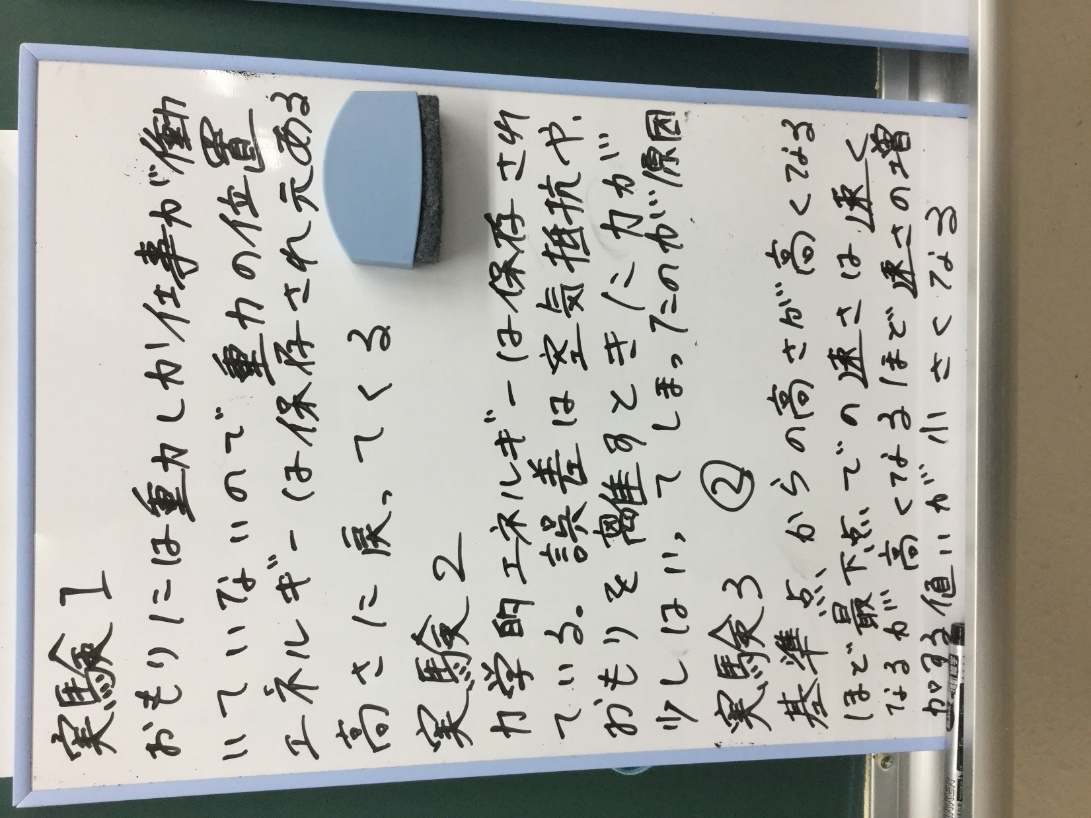 実験1
おもりには重力しか仕事が働
いていないので重力の位置
エネルギーは保存され元ある
高さに戻ってくる
実験2
力学的エネルギーは保存され
ている。誤差は空気抵抗や、
おもりを離すときに力が
少しはいってしまったのが原因
実験3 ②
基準点からの高さが高くなる
ほど最下点での速さは速く
なるが高くなるほど速さの増
加する値いが小さくなる